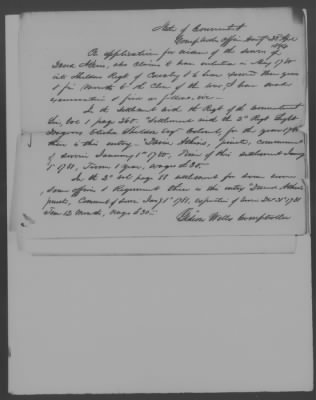 State of Connecticut
Comptrollers Office
On application for evidence of the service of
David Atkins, who claims to have enlisted in May 1780
into Sheldons Regt of Cavalry & to have served three years
& for months to the close of the war, I have made
examination & find as follows, viz
In the settlement with the Regt of the Connecticut
Line, Vol 1 page 260. "Settlement with the 2d Regt Light
Dragoons Elisha Sheldon Esqr Colonel, for the year 1780
there is this entry - David Atkins, private, commencement
of service January 1st 1780, Time of this settlement Jany
1st 1781, Term 1 year, wages
In the 2d vol page 88 settlement for same
same officer & Regiment there is this entry "David Atkins
private, Comment of service Jany 1st 1781, expiration of service Dec 31st 1781
Term 12 Months, wages
Gideon Welles Comptroller